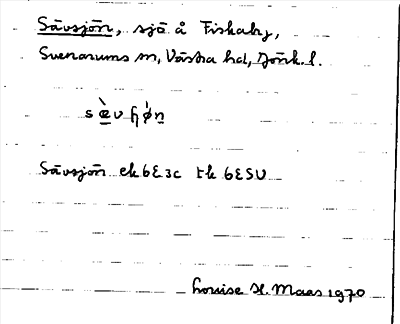 Sävsjön, sjö å Fiskaby,
Svenarums sn, Västra hd, Jönk. l.
sæ̀vɧǿn
Sävsjön ek 6E3c tk 6ESV
Louise H. Maas 1970